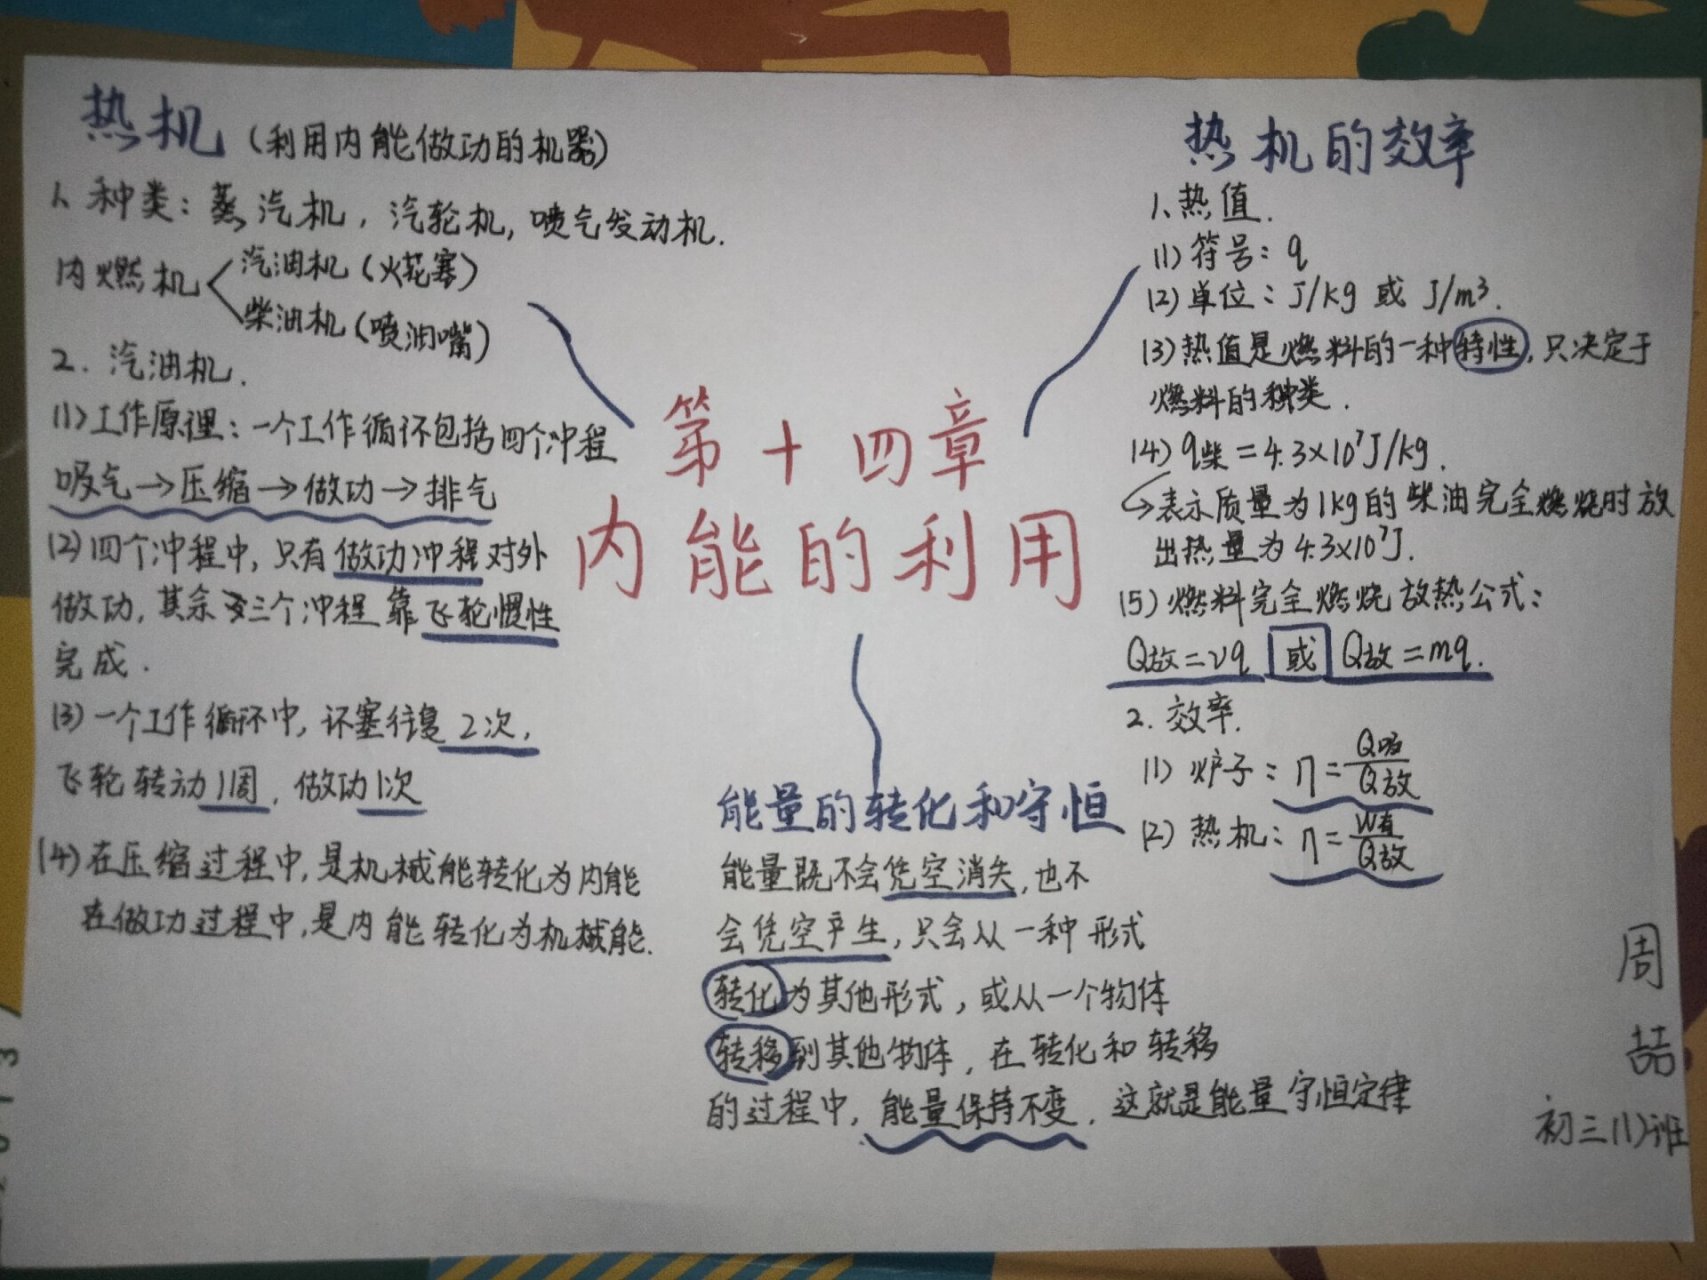 热机(利用内能做功的机器)
1、种类：蒸汽机，汽轮机，喷气发动机.
内燃机
汽油机(火花塞)
柴油机(喷油嘴)
2. 汽油机.
(1)工作原理：一个工作循环包括四个冲程
吸气→压缩→做功→排气
(2)四个冲程中，只有做功冲程对外
做功，其余三个冲程靠飞轮惯性
完成.
(3)一个工作循环中，活塞往复2次，
飞轮转动1周，做功1次
(4)在压缩过程中，是机械能转化为内能
在做功过程中，是内能转化为机械能.
第十四章
内能的利用
能量的转化和守恒
能量既不会凭空消失，也不
会凭空产生，只会从一种形式
转化为其他形式，或从一个物体
转移到其他物体，在转化和转移
的过程中，能量保持不变. 这就是能量守恒定律
热机的效率
1、热值.
(1)符号：q
(2)单位：J/kg 或 J/m³.
(3)热值是燃料的一种特性，只决定于
燃料的种类.
(4)q柴=4.3×10⁷J/kg.
→表示质量为1kg的柴油完全燃烧时放
出热量为4.3×10⁷J.
(5)燃料完全燃烧放热公式：
Q放=vq 或 Q放=mq.
2. 效率.
(1)炉子：η=Q吸/Q放
(2)热机：η=W有/Q放
周
喆
初三(1)班